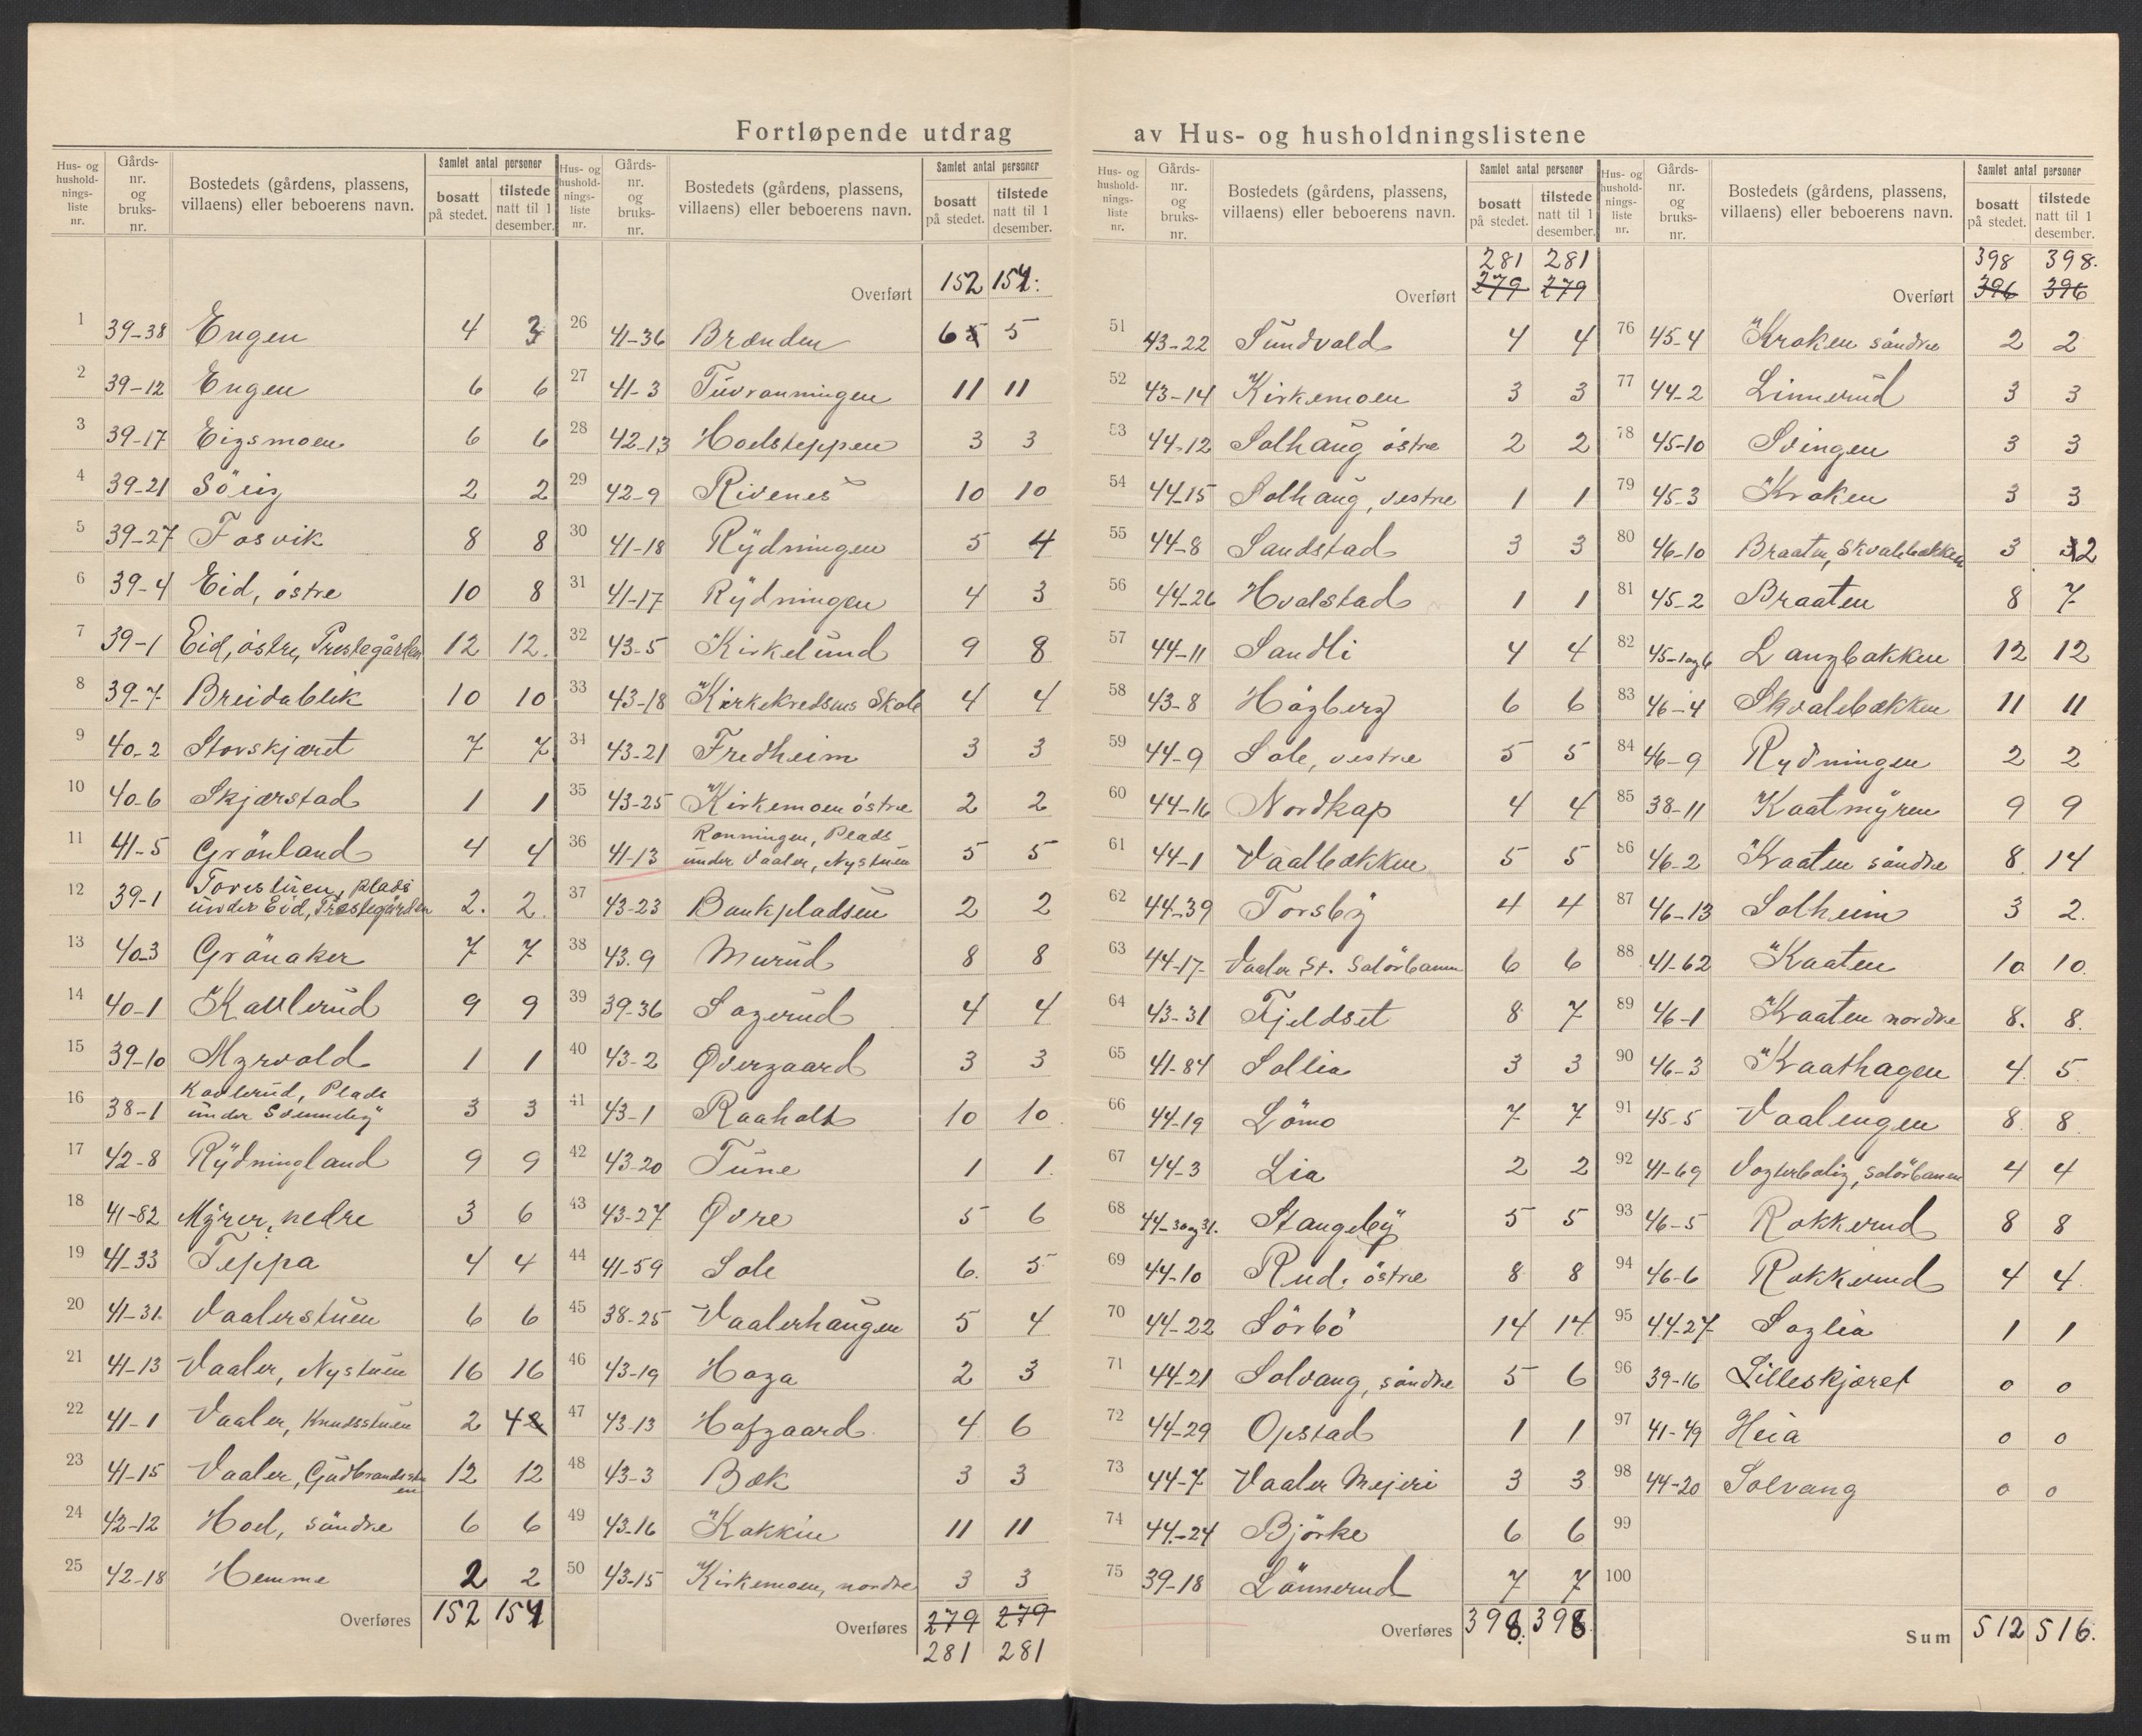 Fortløpende utdrag av Hus- og husholdningslistene
Hus- og husholdningsliste nr. | Gårds-nr. og bruks-nr. | Bostedets (gårdens, plassens, villaens) eller beboerens navn. | Samlet antal personer | bosatt på stedet. | tilstede natt til 1 desember.
1 39-38 Engen 4 3
2 39-12 Engen 6 6
3 39-17 Eigsmoen 6 6
4 39-21 Söeig 2 2
5 39-27 Fosvik 8 8
6 39-4 Eid, östre 10 8
7 39-1 Eid, östre, Prestegården 12 12.
8 39-7 Breidablik 10 10
9 40-2 Storskjæret 7 7
10 40-6 Skjærstad 1 1
11 41-5 Grönland 4 4
12 39-1 Torestuen, plads
under Eid, Prestegården 2. 2.
13 40-3 Grönaker 7 7
14 40-1 Kavlerud 9 9
15 39-10 Myrvold 1 1
16 38-1 Kavlerud, Plads
under Svenneby 3 3
17 42-8 Rydningland 9 9
18 41-82 Myrer, nedre 3 6
19 41-33 Teppa 4 4
20 41-31. Vaalerstuen 6 6
21 41-13 Vaaler, Nystuen 16 16
22 41-1 Vaaler, Knudsstuen 2 4 2
23 41-15 Vaaler, Gudbrandsstuen 12 12
24 42-12 Hoel, söndre 6 6
25 42-18 Hemme 2 2
Overføres 152 154
Hus- og husholdningsliste nr. | Gårds-nr. og bruks-nr. | Bostedets (gårdens, plassens, villaens) eller beboerens navn. | Samlet antal personer | bosatt på stedet. | tilstede natt til 1 desember.
Overført 152 154.
26 41-36 Brænden 6 5 5
27 41-3 Tuvranningen 11 11
28 42-13 Hoelsteppen 3 3
29 42-9 Rivenes 10 10
30 41-18 Rydningen 5 4
31 41-17 Rydningen 4 3
32 43-5 Kirkelund 9 8
33 43-18 Kirkekredsens Skole 4 4
34 43-21 Fredheim 3 3
35 43-25 Kirkemoen östre 2 2
36 41-13 Ronningen, Plads
under Vaaler, Nystuen 5 5
37 43-23 Bankpladsen 2 2
38 43.9 Murud 8 8
39 39-36 Sagerud 4 4
40 43-2 Øvergaard 3 3
41 43-1 Raaholt 10 10
42 43-20 Tune 1 1.
43 43-27 Øvre 5 6
44 41-59 Sole 6. 5
45 38-25 Vaalerhaugen 5 4
46 43-19 Haga 2 3
47 43-13 Hafgaard 4 6
48 43-3 Bæk 3 3
49 43-16 Kakkin 11 11
50 43-15 Kirkemoen, nordre 3 3
Overføres 279 279
281 281
Hus- og husholdningsliste nr. | Gårds-nr. og bruks-nr. | Bostedets (gårdens, plassens, villaens) eller beboerens navn. | Samlet antal personer | bosatt på stedet. | tilstede natt til 1 desember.
281 281
Overført 279 279
51 43-22 Sundvold 4 4
52 43-14 Kirkemoen 3 3
53 44-12 Solhaug östre 2 2
54 44-15 Solhaug, vestre 1 1
55 44-8 Sandstad 3 3
56 44-26 Hvalstad 1 1
57 44-11 Sandli 4 4
58 43-8 Högberg 6 6
59 44-9 Sole, vestre 5 5
60 44-16 Nordkap 4 4
61 44-1 Vaalbækken 5 5
62 44-39 Torsby 4 4
63 44-17 Vaaler St. Solörbanen 6 6
64 43-31 Fjeldset 8 7
65 41-84 Sollia 3 3
66 44-19 Lömo 7 7
67 44-3 Lia 2 2
68 44-30 og 31. Stangeby 5 5
69 44-10 Rud. östre 8 8
70 44-22 Sörbö 14 14
71 44-21 Solvang, söndre 5 6
72 44-29 Opstad 1 1
73 44-7 Vaaler Mejeri 3 3
74 44-24 Björke 6 6
75 39-18 Lönnerud 7 7
Overføres 398. 398
Hus- og husholdningsliste nr. | Gårds-nr. og bruks-nr. | Bostedets (gårdens, plassens, villaens) eller beboerens navn. | Samlet antal personer | bosatt på stedet. | tilstede natt til 1 desember.
398 398.
Overført 396 396
76 45-4 Kroken söndre 2 2
77 44-2 Linnerud 3 3
78 45-10 Svingen 3 3
79 45-3 Kroken 3 3
80 46-10 Braaten, Skvalebækken 3 3 2
81 45-2 Braaten 8 7
82 45-1 og 6 Langbakken 12 12
83 46-4 Skvalebækken 11 11
84 46-9 Rydningen 2 2
85 38-11 Kaatmyren 9 9
86 46-2 Kaaten söndre 8. 14
87 46-13 Solheim 3 2.
88 41-62 Kaaten 10 10.
89 46-1 Kaaten nordre 8. 8.
90 46-3 Kaathagen 4. 5
91 45-5 Vaalengen 8. 8.
92 41-69 Vogterbolig, Solörbanen 4 4
93 46-5 Rokkerud 8 8
94 46-6 Rokkerud 4 4.
95 44-27 Saglia 1 1
96 39-16 Lilleskjæret 0 0
97 41-49 Heia 0 0
98 44-20 Solvang 0 0
99
100
Sum 512 516.